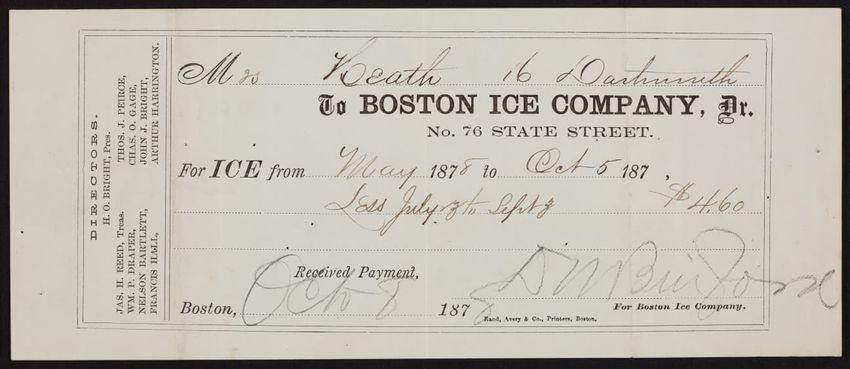 DIRECTORS.
H. O. BRIGHT, Pres.
JAS. H. REED, Treas. THOS. J. PEIRCE,
WM. P. DRAPER, CHAS. O. GAGE,
NELSON BARTLETT, JOHN J. BRIGHT,
FRANCIS HALL, ARTHUR HARRINGTON.
Mrs Heath 16 Dartmouth
To BOSTON ICE COMPANY, Dr.
No. 76 STATE STREET.
For ICE from May 1878 to Oct 5 187 ,
Less July 3 to Sept 3 $4.60
Received Payment,
Boston, Oct 8 1878
For Boston Ice Company.
Rand, Avery & Co., Printers, Boston.